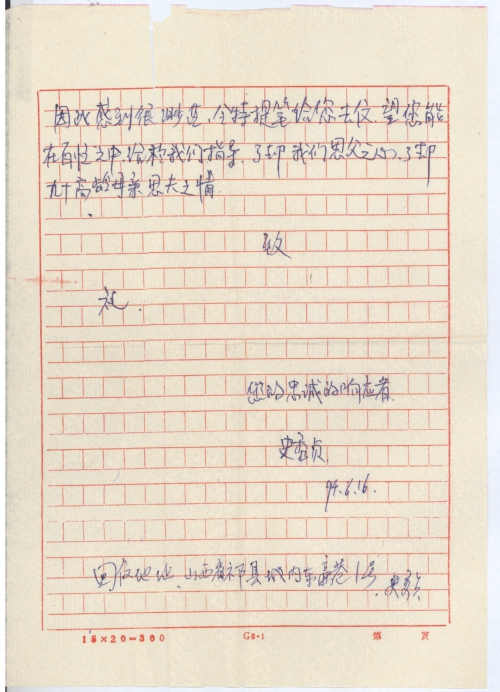 因我感到很渺茫，今特提笔给您去信，望您能
在百忙之中给於我们指导，了却我们思父之心，了却
九十高龄母亲思夫之情
致
礼.
您的忠诚的响应者.
史 贞
94.6.16.
回信地址. 山西省祁县城内东 巷1号
史 贞
15×20=300
G8·1
第 页